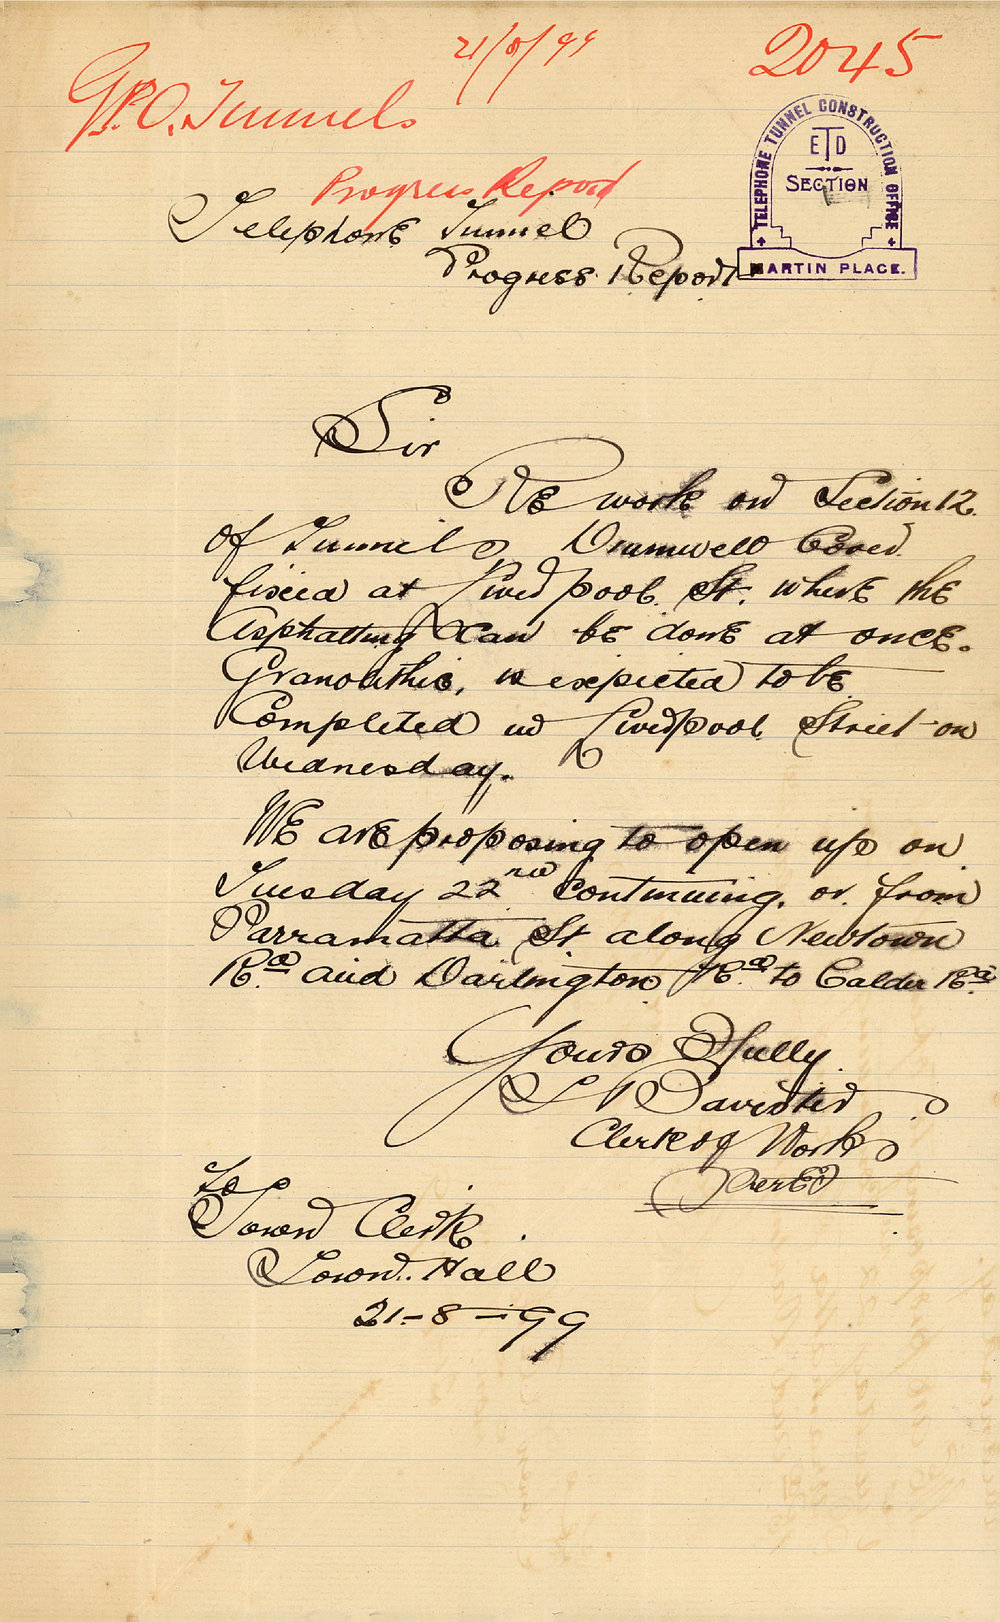 21/8/99
2045
G.P.O. Tunnels
TELEPHONE TUNNEL CONSTRUCTION OFFICE
ETD
SECTION
MARTIN PLACE.
Progress Report
Telephone Tunnel
Progress Report
Sir
Re work on Section 12
of Tunnels Cover
fixed at Liverpool St. where the
Asphalting can be done at once.
Granolithic, is expected to be
Completed in Liverpool Street on
Wednesday.
We are proposing to open up on
Tuesday 22nd Continuing, or from
Parramatta St along Newtown
Rd and Darlington Rd to Calder Rd
Yours Ffully
Clerk of Works
To
Town Clerk
Town Hall
21-8-99